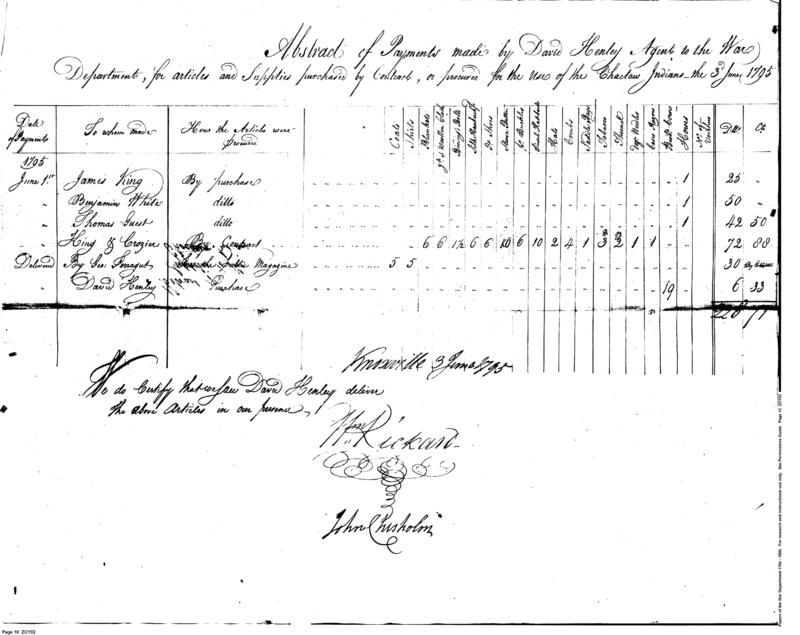 Abstract of Payments made by David Henley Agent to the War
Department, for articles and Supplies purchased by Contract, or procured for the Use of the Chactaw Indians the 3d June 1795
Date of Payments | To whom made | How the Articles were | Coats | Shirts | Blankets | Hats | Combs | Tobacco | Horses | No. of Vouchers | Dlls. | Ct.
1795
June 1st James King By purchase 1 25 "
" Benjamin White ditto 1 50 "
" Thomas Guest ditto 1 42 50
" King & Crozier By Contract 6 6 1½ 6 6 10 6 10 2 4 1 3 2 1 1 72 88
Delivered By Gen. the Public Magazine 5 5 30
" David Henley Purchase 19 6 33
228 71
Knoxville 3 June 1795
We do Certify that we saw David Henley deliver
the above Articles in our presence
Wm. Rickard
John Chisholm
Page 10 ZCY02
Papers of the War Department 1784 - 1800. For research and instructional use only. See Permissions Guide. Page 10 ZCY02